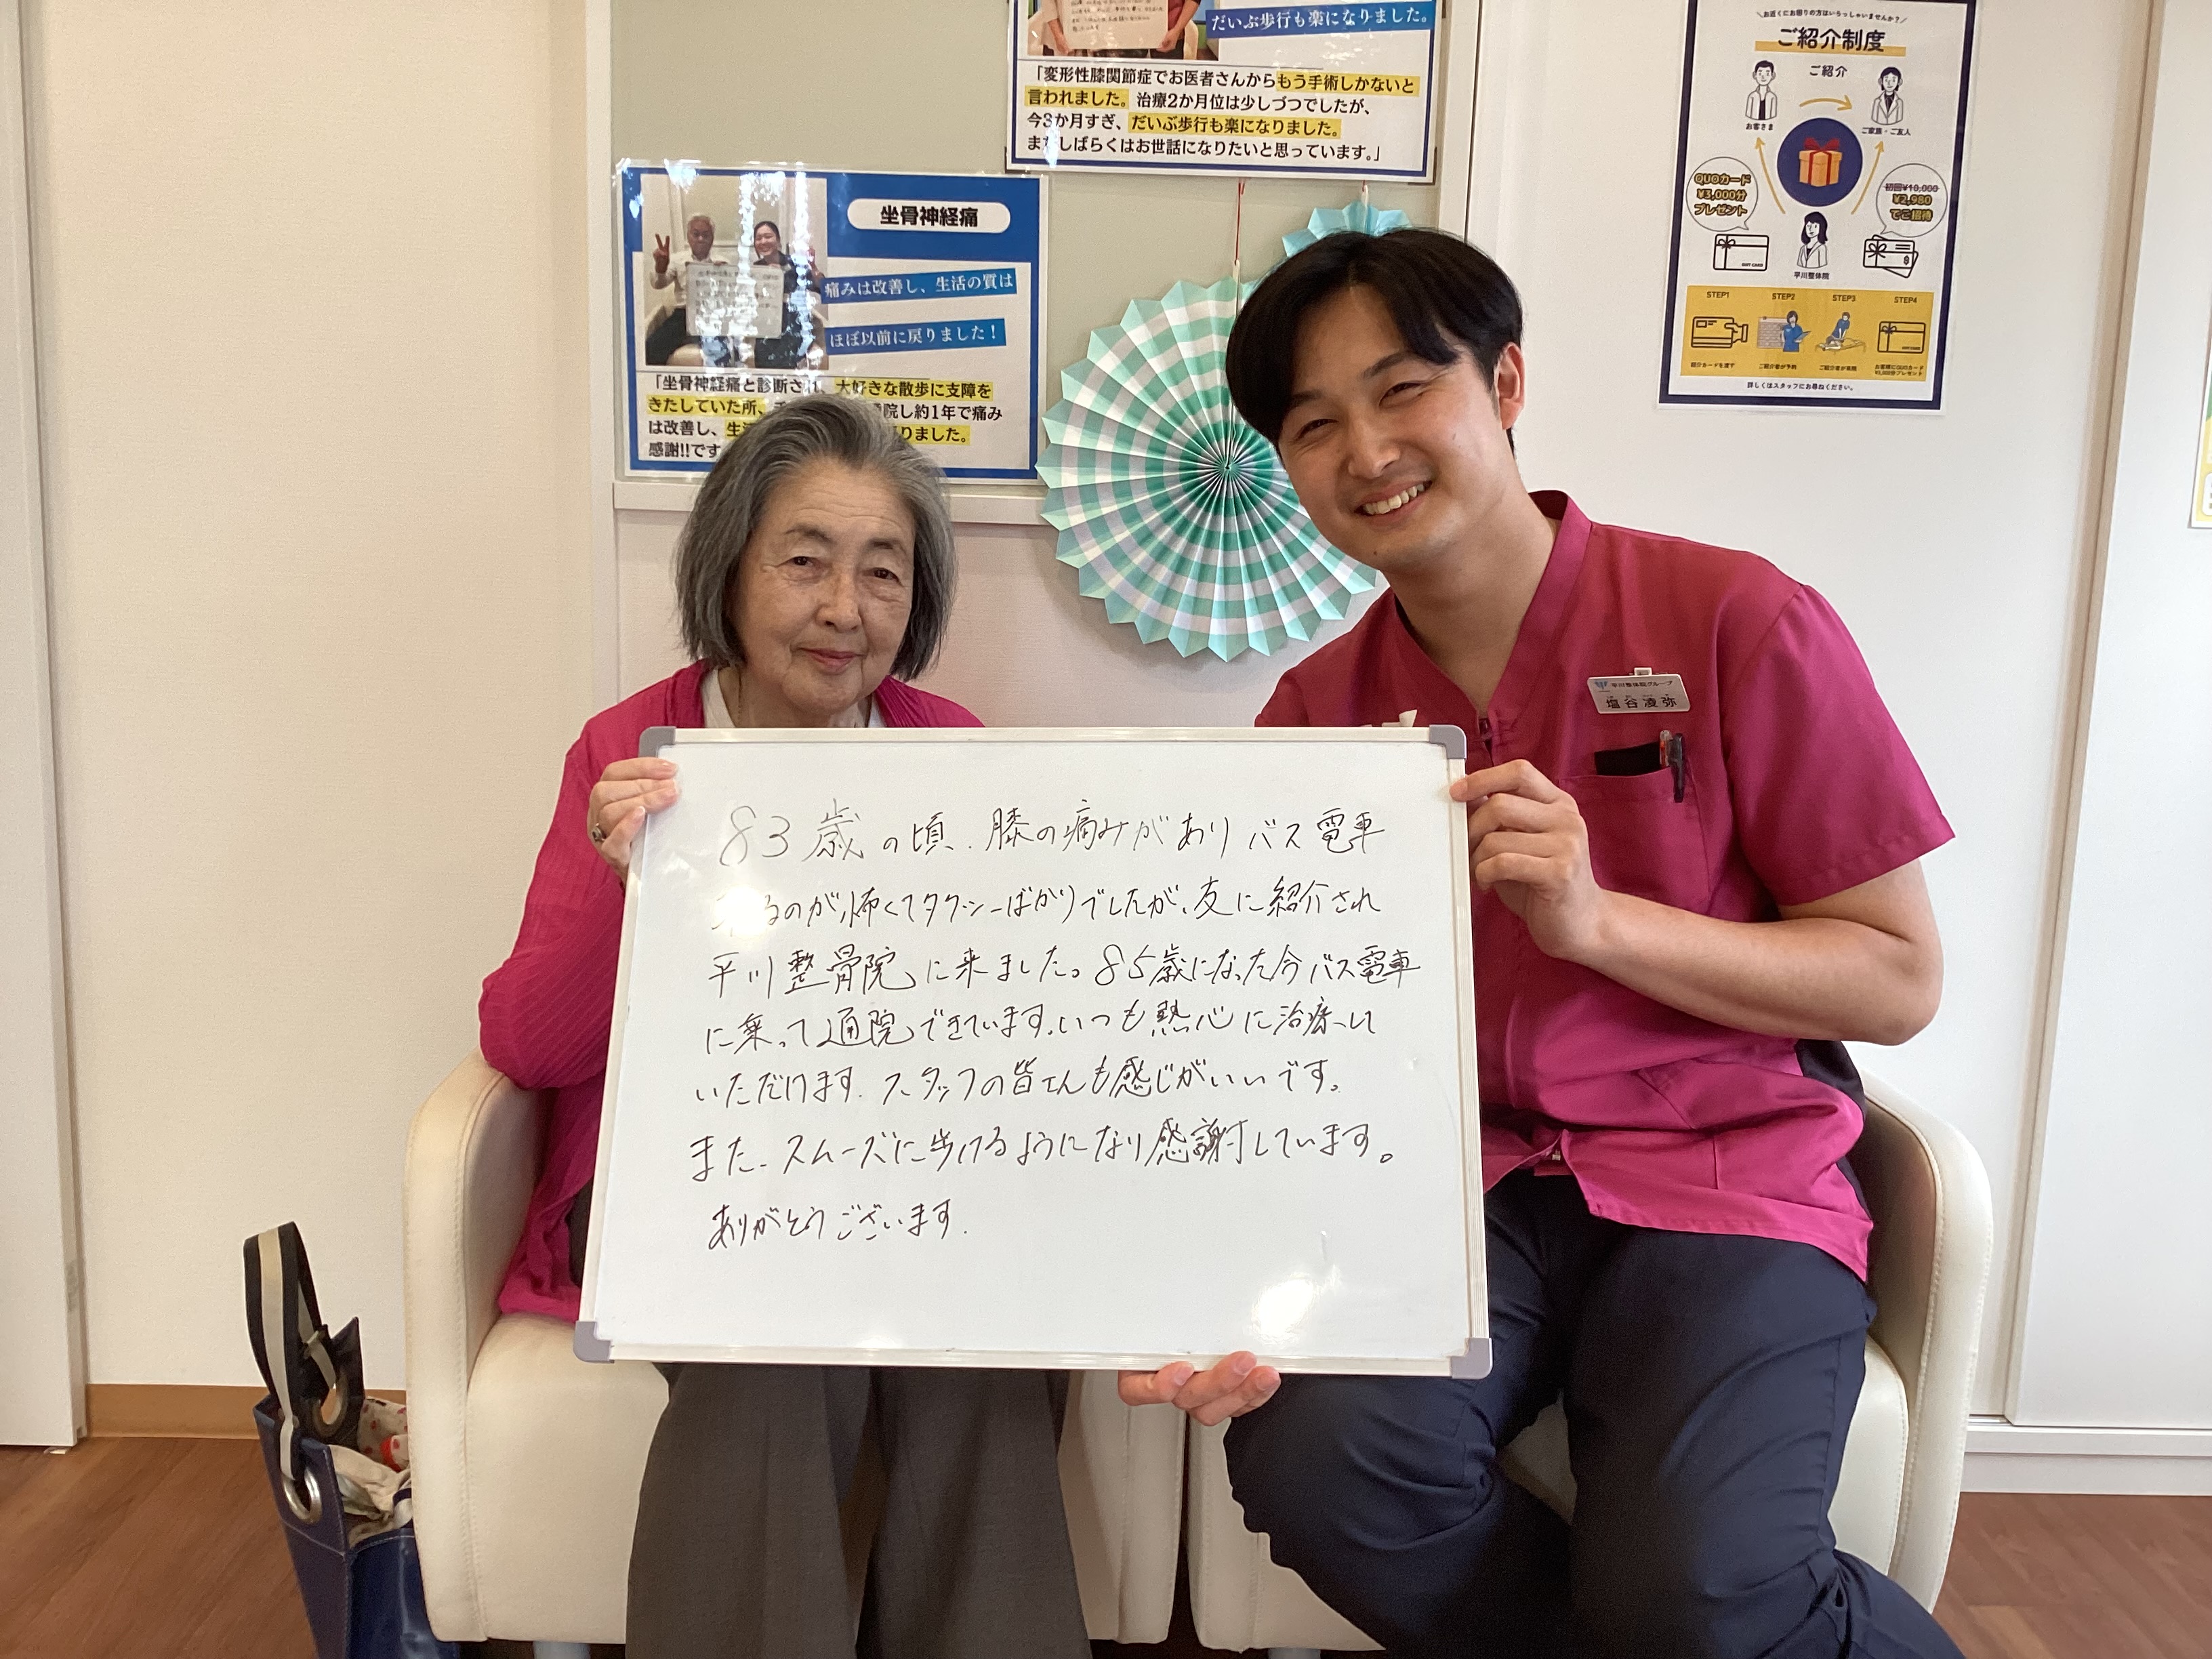 だいぶ歩行も楽になりました。
「変形性膝関節症でお医者さんからもう手術しかないと
言われました。治療2か月位は少しづつでしたが、
今3か月すぎ、だいぶ歩行も楽になりました。
まだしばらくはお世話になりたいと思っています。」
坐骨神経痛
痛みは改善し、生活の質は
ほぼ以前に戻りました!
「坐骨神経痛と診断され、大好きな散歩に支障を
きたしていた所、
院し約1年で痛み
は改善し、生活
りました。
感謝!!です
＼お近くにお困りの方はいらっしゃいませんか?／
ご紹介制度
ご紹介
お客さま
ご家族・ご友人
QUOカード
¥3,000分
プレゼント
初回¥10,000
¥2,980
でご招待
GIFT CARD
平川整体院
STEP1
STEP2
STEP3
STEP4
紹介カードを渡す
ご紹介者が予約
ご紹介者が来院
お客様にQUOカード
¥3,000分プレゼント
詳しくはスタッフにお尋ねください。
平川整体院グループ
塩谷凌弥
83歳の頃、膝の痛みがありバス電車
るのが怖くてタクシーばかりでしたが、友に紹介され
平川整骨院に来ました。85歳になった今バス電車
に乗って通院できています。いつも熱心に治療して
いただけます。スタッフの皆さんも感じがいいです。
また、スムーズに歩けるようになり感謝しています。
ありがとうございます。